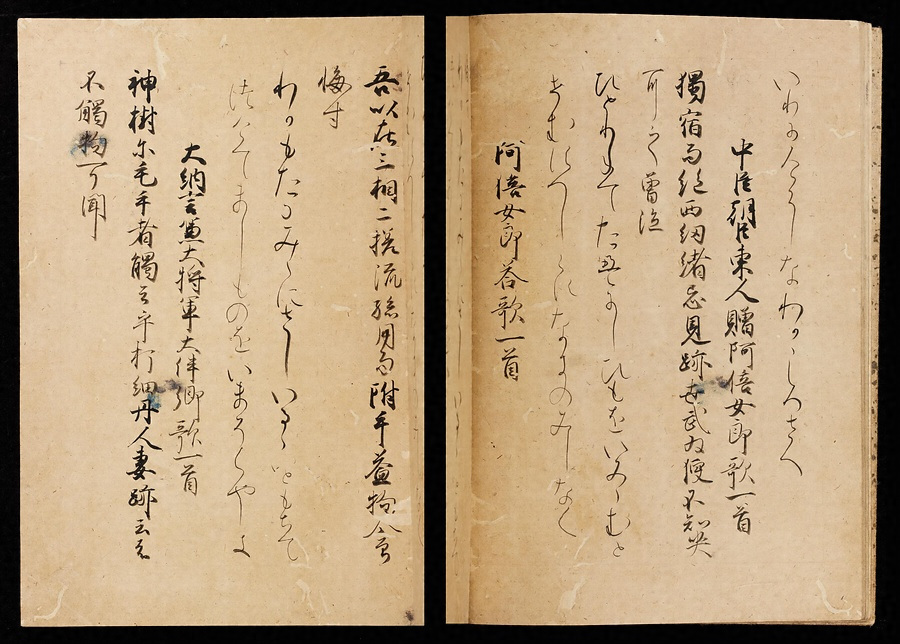 いりにけらしなわかこゝろさへ
中臣朝臣東人贈阿倍女郎歌一首
獨宿而絶西紐緒忌見跡世武為便不知哭
耳之曾泣
ひとりねてたえにしひもをいみゝむと
せむすへしらになきのみしなく
阿倍女郎答歌一首
吾以在三相二搓流絲用而附手益物今曾
悔寸
わかもたるみ いともちて
つけてましものをいまそくやしき
大納言兼大将軍大伴卿歌一首
神樹尓毛手者觸云乎打細丹人妻跡云者
不觸物可聞